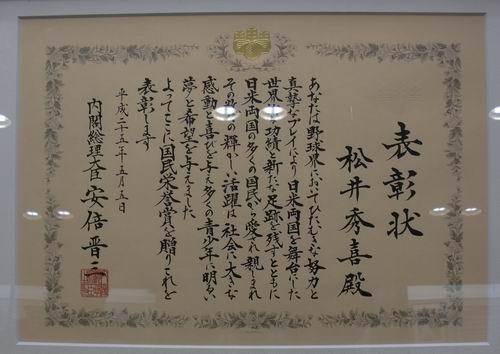 表彰状
松井秀喜殿
あなたは野球界においてひたむきな努力と
真摯なプレイにより日米両国を舞台にした
世界的な功績と新たな足跡を残すとともに
日米両国の多くの国民から愛され親しまれ
その数々の輝かしい活躍は社会に大きな
感動と喜びを与え多くの青少年に明るい
夢と希望を与えました
よってここに国民栄誉賞を贈りこれを
表彰します
平成二十五年五月五日
内閣総理大臣 安倍晋三